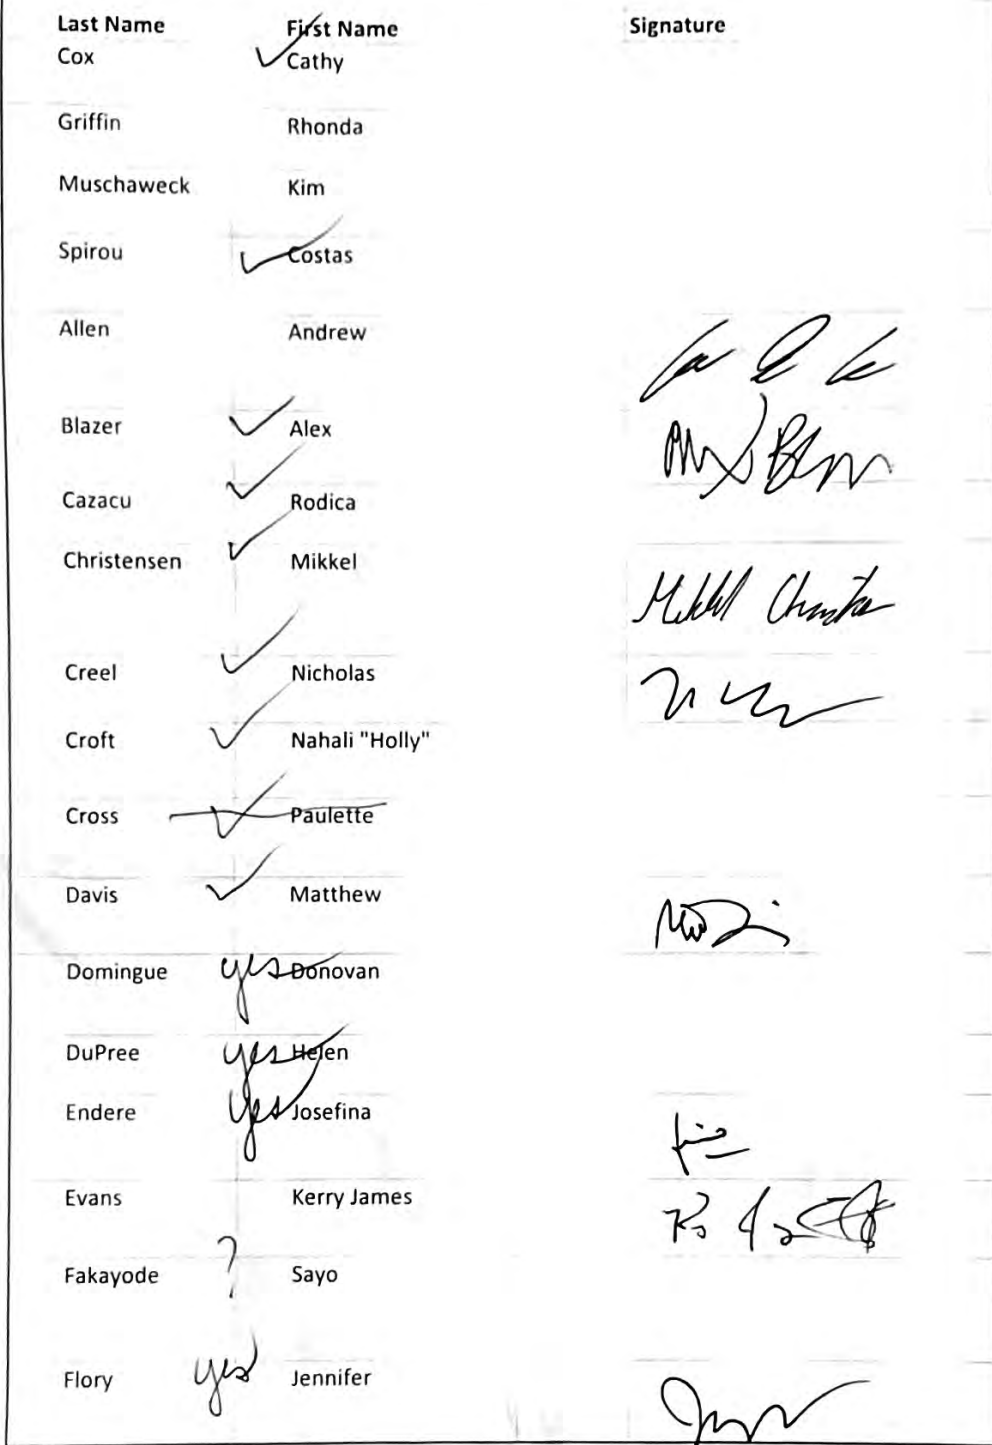 Last Name First Name Signature
Cox ✓ Cathy
Griffin Rhonda
Muschaweck Kim
Spirou ✓ Costas
Allen Andrew
Blazer ✓ Alex
Cazacu ✓ Rodica
Christensen ✓ Mikkel Mikkel
Creel ✓ Nicholas
Croft ✓ Nahali "Holly"
Cross ✓ Paulette
Davis ✓ Matthew
Domingue yes Donovan
DuPree yes Helen
Endere yes Josefina
Evans Kerry James
Fakayode ? Sayo
Flory yes Jennifer